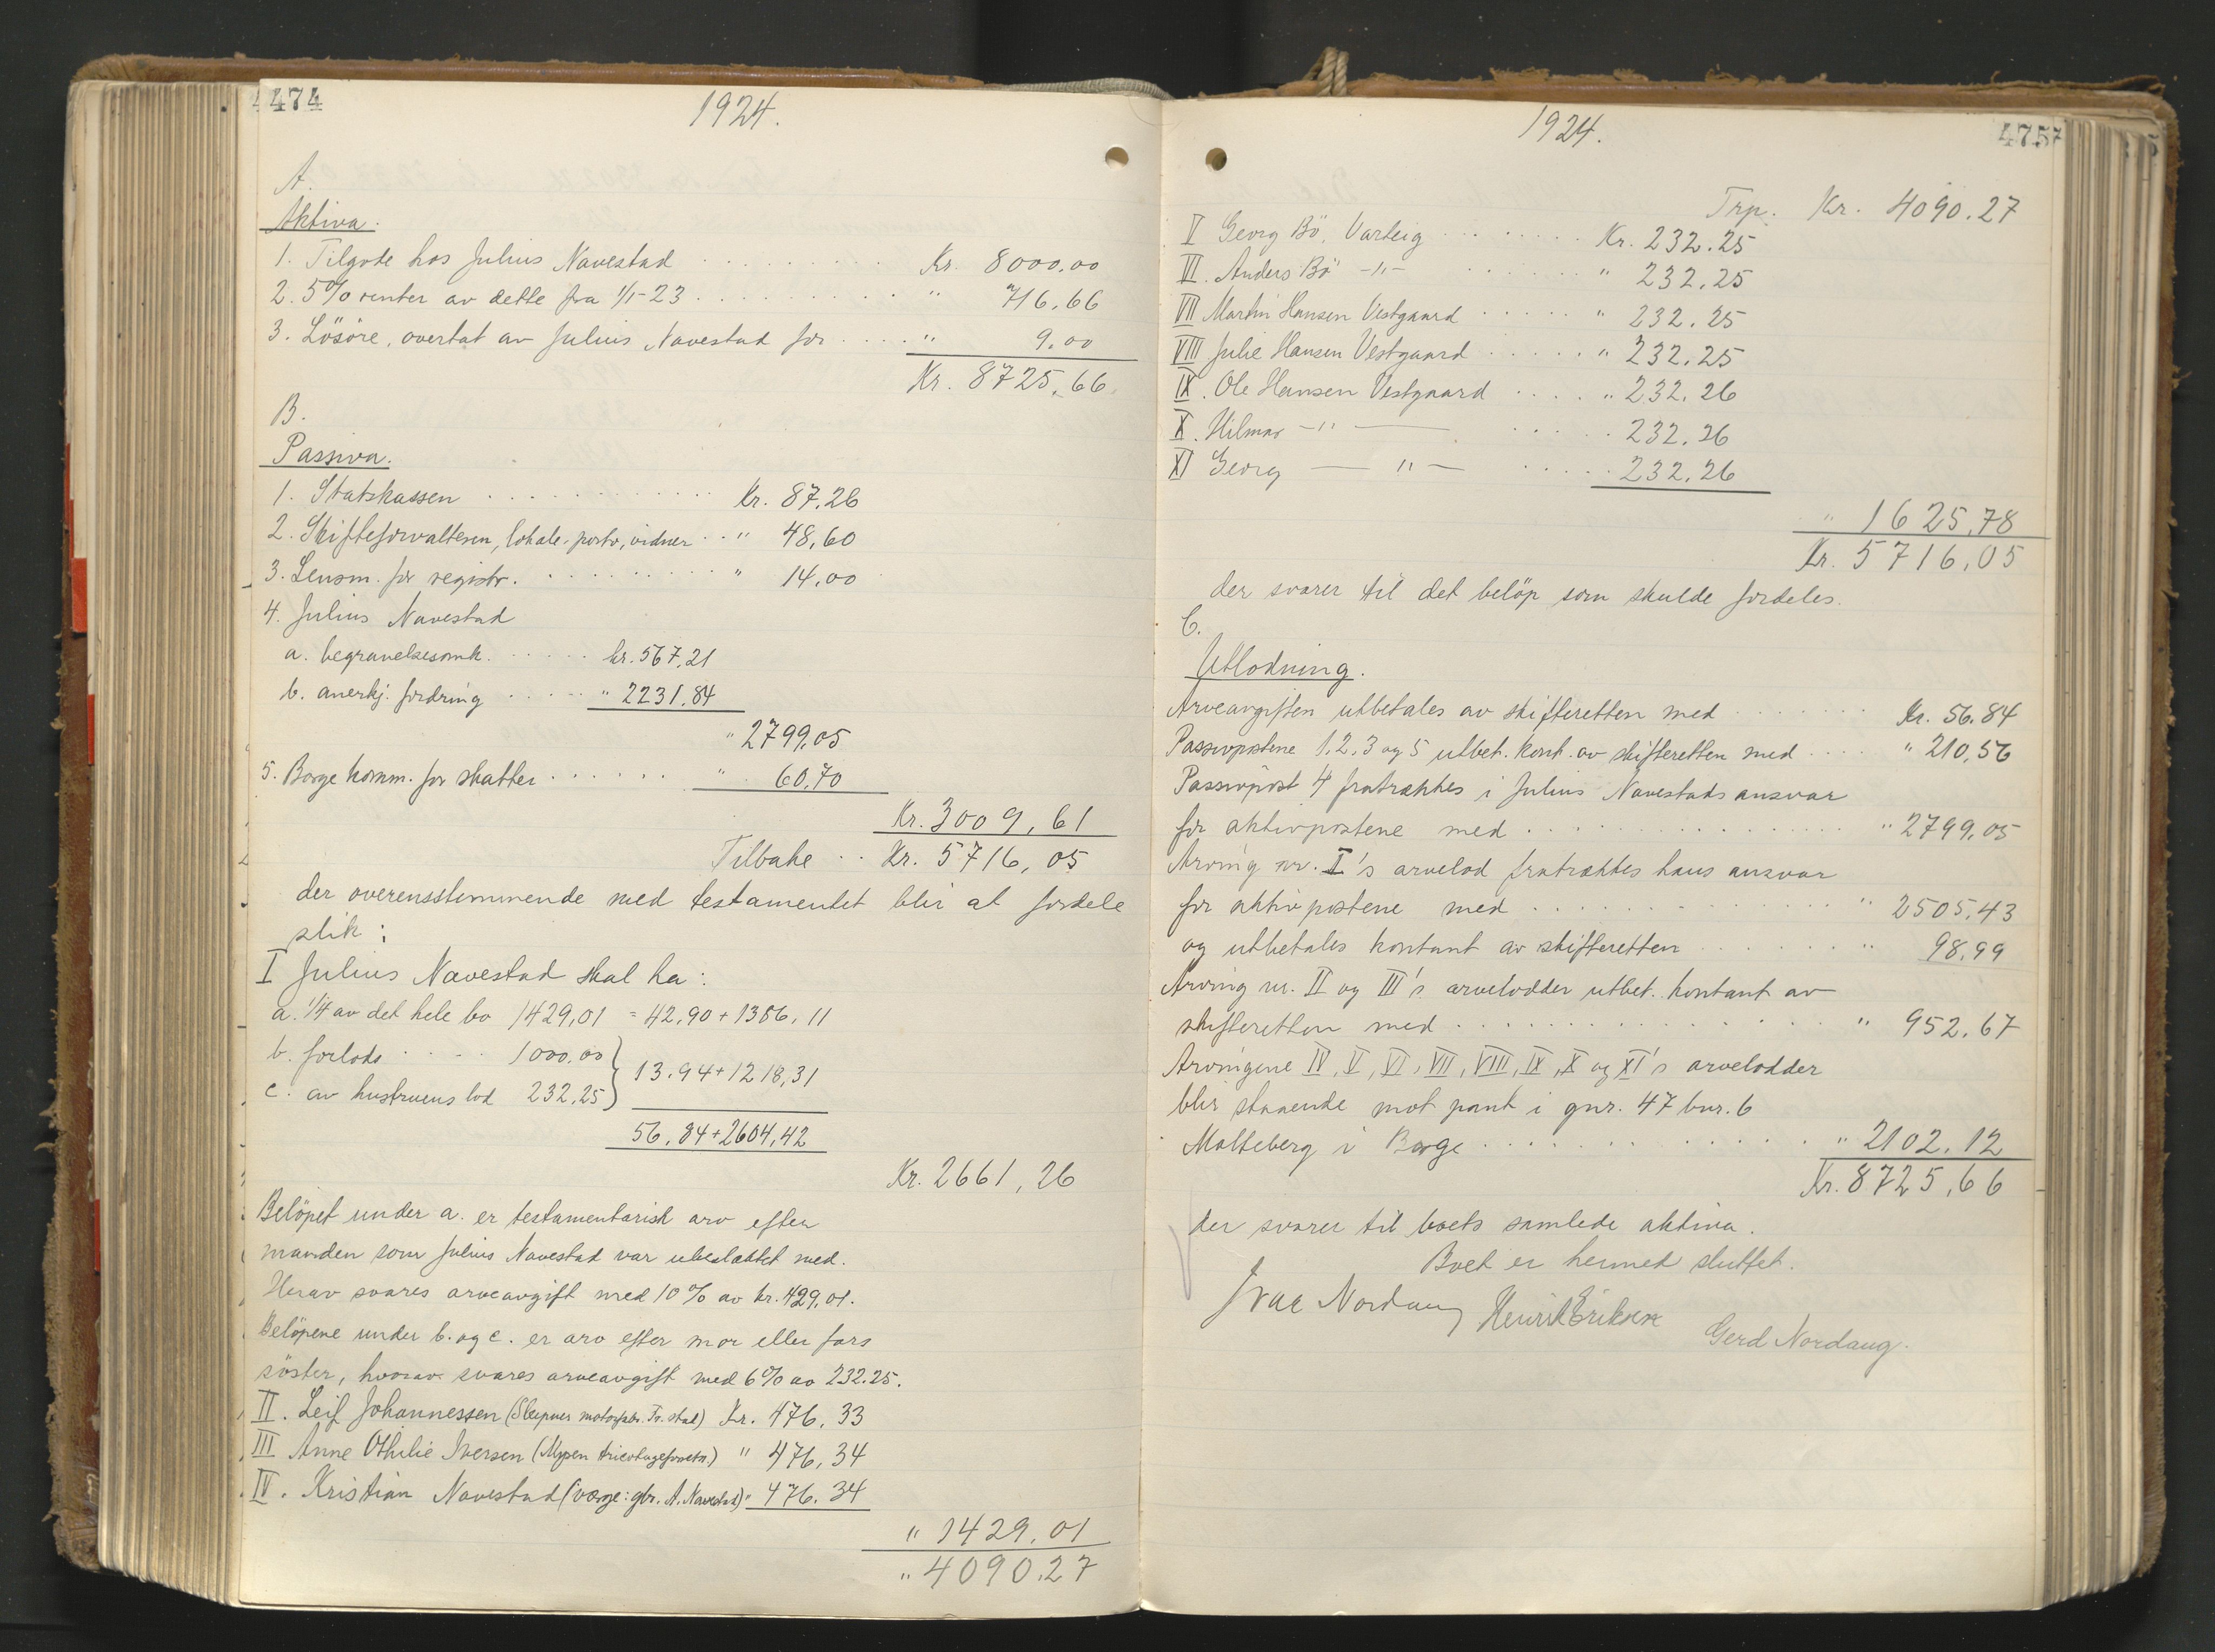 474
1924.
A.
Aktiva.
1. Tilgode hos Julius Navestad . . . . . . . . . Kr. 8000.00
2. 5% renter av dette fra 1/1-23 . . . . . . . . . " 716.66
3. Lösöre, overtat av Julius Navestad for . . . . " 9.00
Kr. 8725.66
B.
Passiva.
1. Statskassen . . . . . . . . . . . Kr. 87.26
2. Skifteforvalteren, lokale, porto, vidner . . " 48,60
3. Lensm. for registr. . . . . . . . . . " 14,00
4. Julius Navestad
a. begravelsesomk. . . . . . kr. 567,21
b. anerkj. fordring . . . . . " 2231.84
" 2799,05
5. Borge komm. for skatter . . . . . . " 60.70
Kr. 3009,61
Tilbake . . Kr. 5716,05
der overensstemmende med testamentet blir at fordele
slik:
I Julius Navestad skal ha:
a. 1/4 av det hele bo 1429,01 = 42,90 + 1386,11
b. forlods . . . . 1000.00
c. av hustruens lod 232,25 } 13.94 + 1218,31
56,84 + 2604,42
Kr. 2661,26
Belöpet under a. er testamentarisk arv efter
manden som Julius Navestad var ubeslaktet med.
Herav svares arveavgift med 10% av kr. 429,01.
Belöpene under b. og c. er arv efter mor eller fars
söster, hvorav svares arveavgift med 6% av 232.25.
II. Leif Johannessen (Sleipner motorfabr. Fr. stad) Kr. 476,33
III Anne Othilie Iversen (Mysen tricotageforretn.) " 476,34
IV. Kristian Navestad (verge: gbr. A. Navestad) " 476.34
" 1429.01
" 4090.27
475
1924.
Trp. Kr. 4090.27
V Georg Bö, Varteig . . . . . . . Kr. 232.25
VI. Anders Bö -"- . . . . . . " 232,25
VII Martin Hansen Vestgaard . . . . . " 232.25
VIII Julie Hansen Vestgaard . . . . . " 232,25
IX. Ole Hansen Vestgaard . . . . " 232,26
X. Hilmar -"- . . . . . 232.26
XI Georg -"- . . . . . 232,26
" 1625,78
Kr. 5716,05
der svarer til det belöp som skulde fordeles.
C.
Utlodning.
Arveavgiften utbetales av skifteretten med . . . . . . . kr. 56.84
Passivpostene 1, 2, 3 og 5 utbet. kont. av skifteretten med . . . . " 210,56
Passivpost 4 fratrækkes i Julius Navestads ansvar
for aktivpostene med . . . . . . . . . . . . . " 2799,05
Arving nr. I's arvelod fratrækkes hans ansvar
for aktivpostene med . . . . . . . . . . . . . " 2505,43
og utbetales kontant av skifteretten . . . . . . . " 98,99
Arving nr. II og III's arvelodder utbet. kontant av
skifteretten med . . . . . . . . . . . . . " 952.67
Arvingene IV, V, VI, VII, VIII, IX, X og XI's arvelodder
blir staaende mot pant i gnr. 47 bnr. 6
Molteberg i Borge . . . . . . . . . . . . . " 2102.12
Kr. 8725,66
der svarer til boets samlede aktiva.
Boet er hermed sluttet.
Ivar Nordaug Henrik Eriksen Gerd Nordaug.